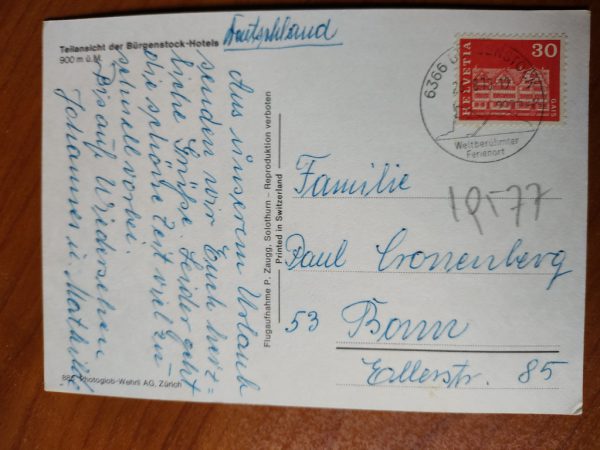 Teilansicht der Bürgenstock-Hotels
900 m ü.M.
Deutschland
Aus unserem Urlaub
senden wir Euch herz=
liche Grüße. Leider geht
die schöne Zeit viel zu
schnell vorbei.
Bis auf Wiedersehen
Johannes u. Mathilde
Photoglob-Wehrli AG, Zürich
Flugaufnahme P. Zaugg, Solothurn - Reproduktion verboten
Printed in Switzerland
6366 BÜRGENSTOCK
Weltberühmter
Ferienort
30
HELVETIA
GAIS
Familie
Paul Cronenberg
53 Bonn
Edlerstr. 85